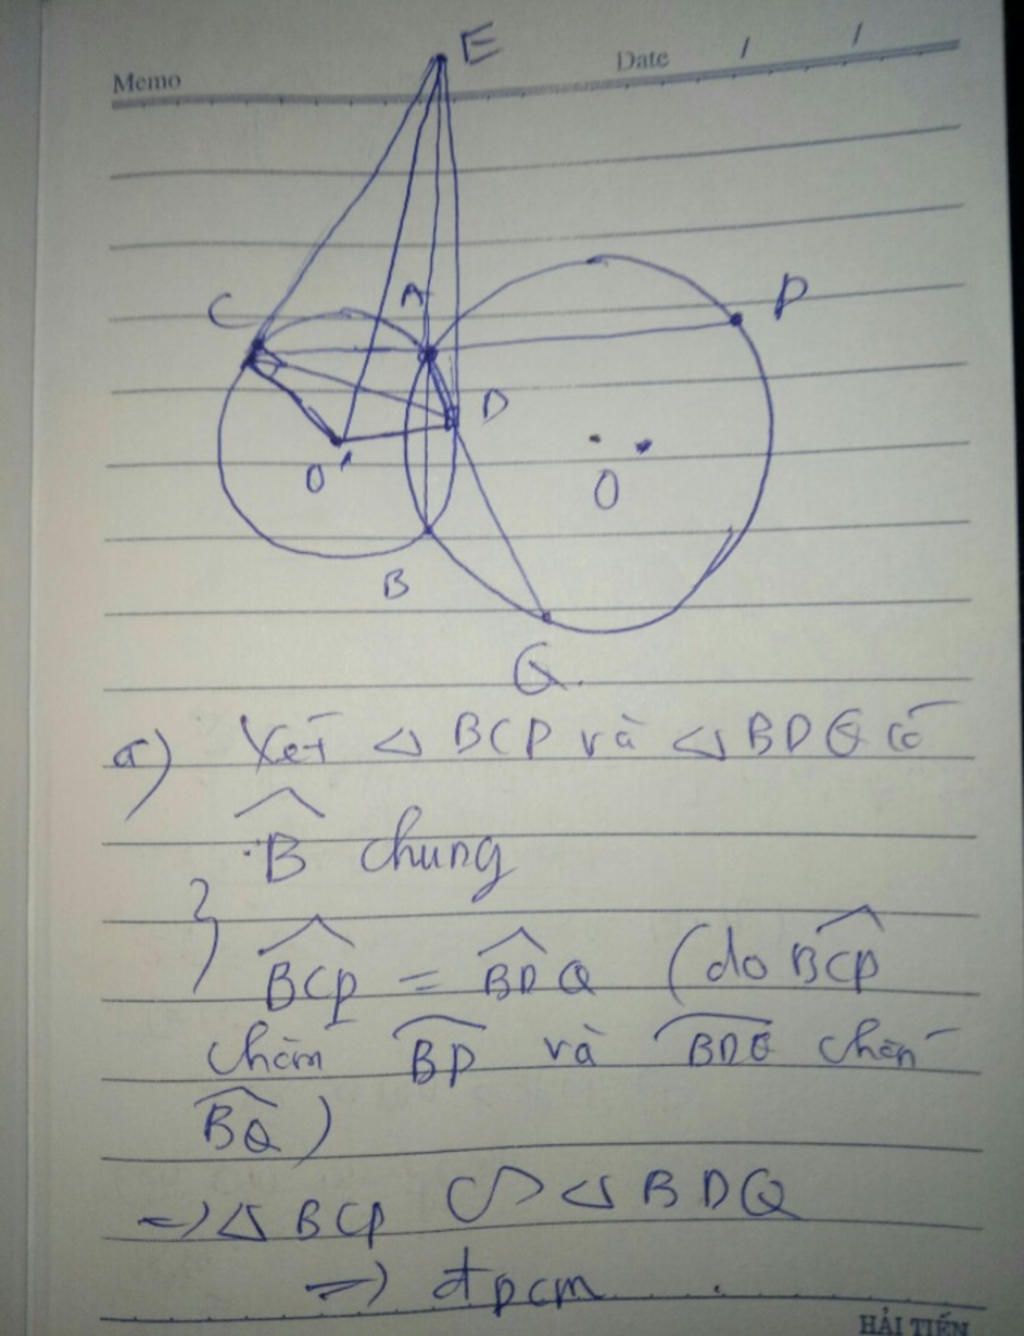 E
Memo
Date / /
C
A
P
D
O'
O
B
Q
a) Xét △ BCP và △ BDQ có
B chung
BCP = BDQ (do BCP
chắn BP và BDQ chắn
BQ)
=> △ BCP ∽ △ BDQ
=> đpcm.
HẢI TIẾN